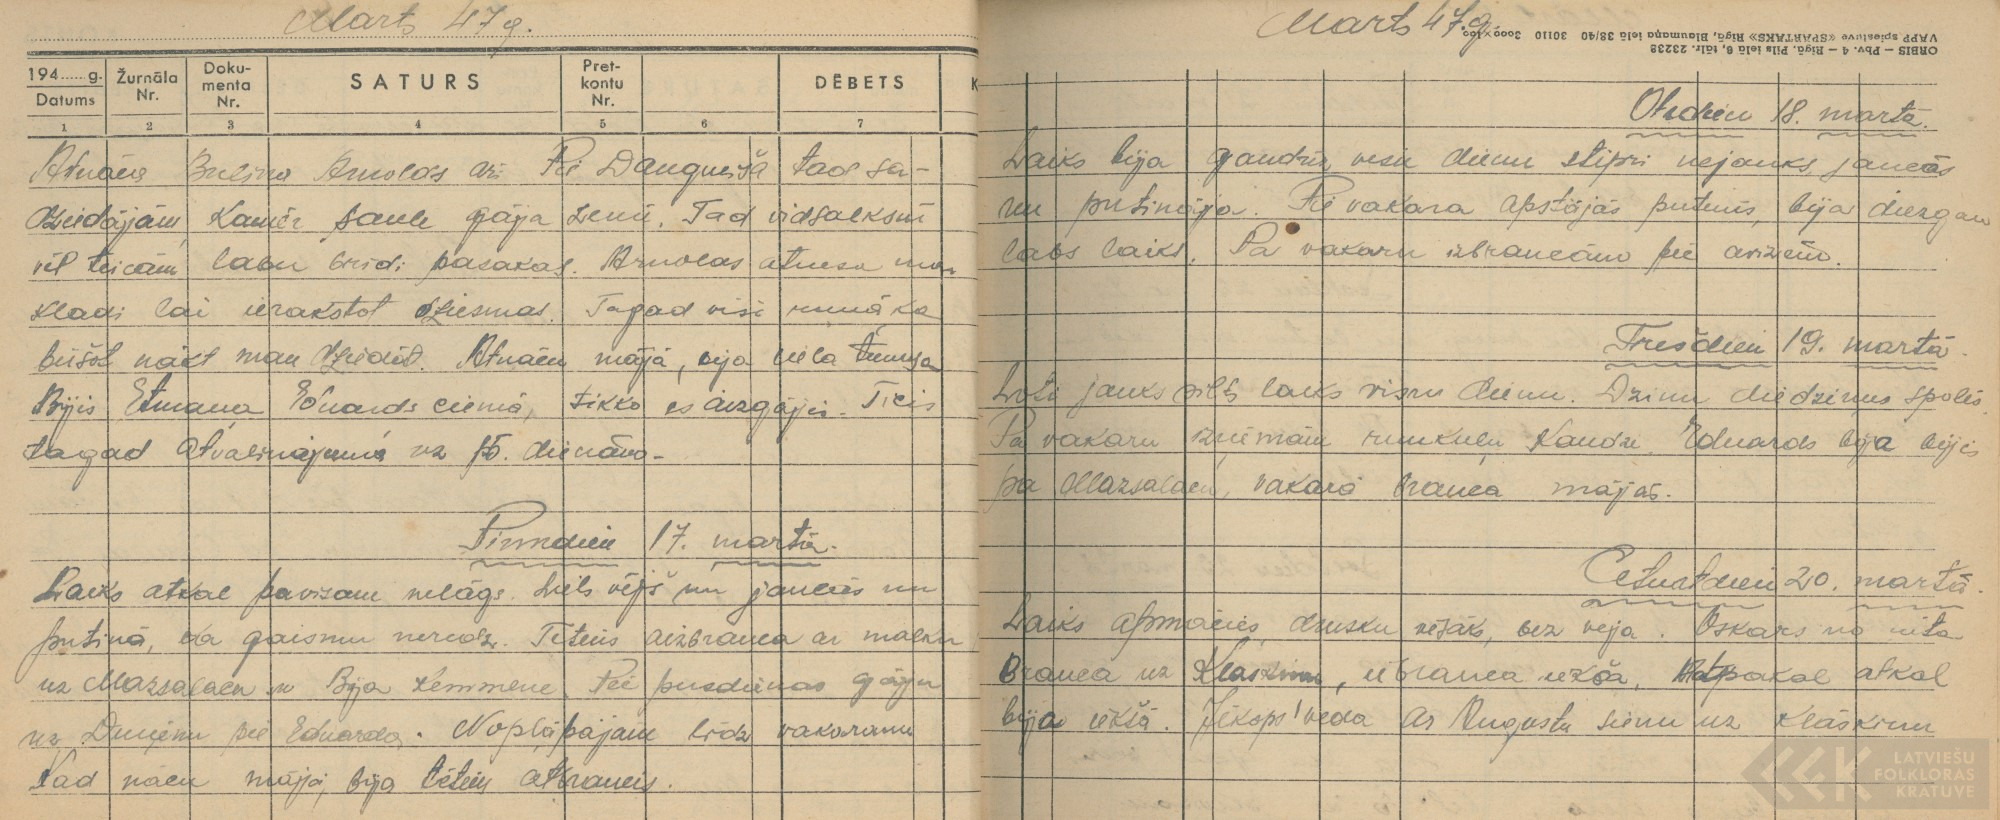 Marts 47 g.
194......g. Žurnāla Nr. Doku-menta Nr. SATURS Pret-kontu Nr. DĒBETS K
Datums
1 2 3 4 5 6 7
Atnāca Arnolds arī. Pie tad sa-
dziedājām, kamēr saule gāja zemē. Tad vidsalksnī
vēl teicām labu brīdi pasakas. Arnolds atnesa man
kladi lai ierakstot dziesmas. Tagad visi
būšot nākt man dziedāt. Atnācu mājā, bija liela tumsa
Bijis Etmaņa Eduards ciemā, tikko es aizgājis. Ticis
tagad atvaļinājumā uz 15. dienām.
Pirmdien 17. martā.
Laiks atkal pavisam nelāgs. Liels vējš un jaucās un
putina, ka gaismu neredz. Tētiņš aizbrauca ar malku
uz Mazsalacu. Bija Pie pusdienas gāju
uz pie Eduarda. Nopļāpājām līdz vakaram
Kad nācu mājā, bija tētiņš atbraucis.
Marts 47. g.
ORBIS — Pbv. 4 — Rīgā, Pils ielā 6, tālr. 23238
VAPP spiestuve «SPARTAKS» Rīgā, Blaumaņa ielā 38/40 30110 3000×100
Otrdien 18. martā.
Laiks bija gandrīz visu dienu stipri nejauks, jaucās
un putināja. Pie vakara apstājās putenis, bija diezgan
labs laiks. Pa vakaru izbraucām pie
Trešdien 19. martā.
Ļoti jauks silts laiks visu dienu. Dzinu diedziņus spolēs.
Pa vakaru izņēmām runkuļu kaudzi. Eduards bija bijis
pa Mazsalacu, vakarā brauca mājās.
Ceturtdien 20. martā.
Laiks apmācies, drusku vēsāks, bez vēja. Oskars no rīta
brauca uz iebrauca iekšā. Atpakaļ atkal
bija iekšā. Jēkops veda ar Augustu sienu uz
LATVIEŠU
FOLKLORAS
KRATUVE